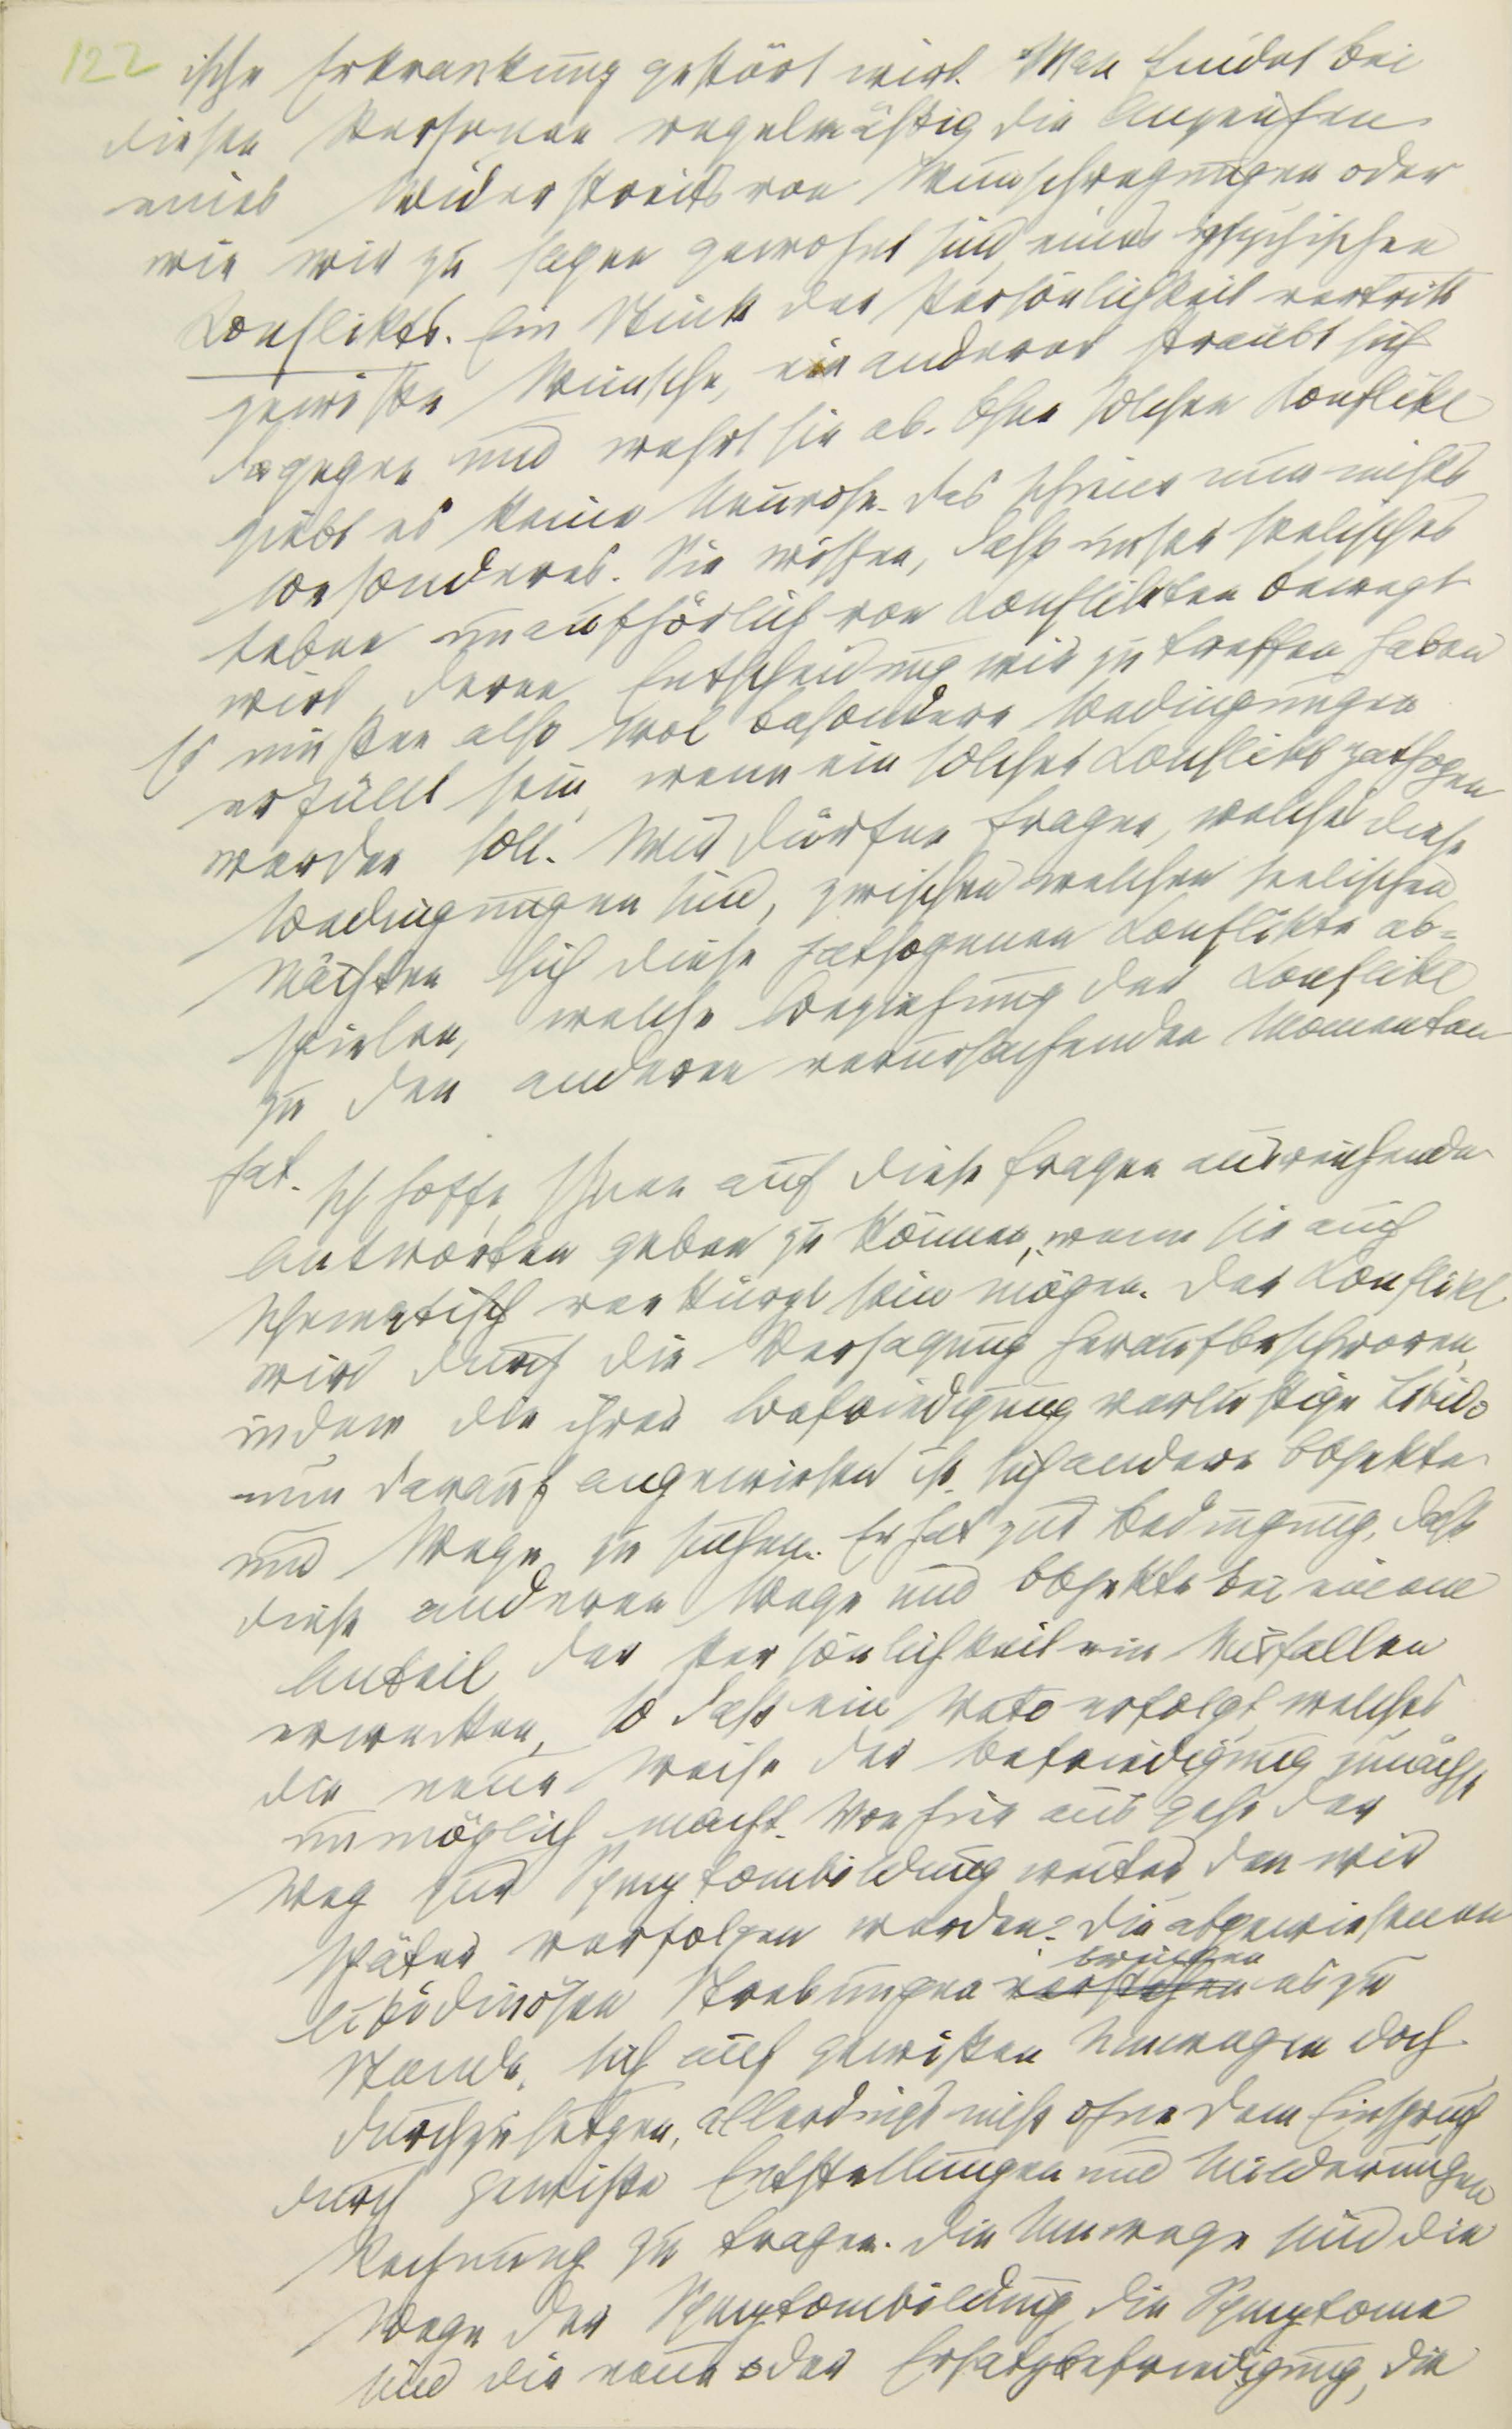 122
ische Erkrankung gestört wird. Man findet bei
diesen Personen regelmäßig die Anzeichen
eines Widerstreits von Wunschregungen oder
wie wir zu sagen gewohnt sind, eines psychischen
Conflikts. Ein Stück der Persönlichkeit vertritt
gewisse Wünsche, ein anderes sträubt sich
dagegen und wehrt sie ab. Ohne solchen Conflikt
giebt es keine Neurose. Das schiene nun nichts
besonderes. Sie wissen, daß unser seelisches
Leben unaufhörlich von Conflikten bewegt
wird, deren Entscheidung wir zu treffen haben
Es müssen also wol besondere Bedingungen
erfüllt sein, wenn ein solcher Conflikt pathogen
werden soll. Wir dürfen fragen, welche diese
Bedingungen sind, zwischen welchen seelischen
Mächten sich diese pathogenen Conflikte ab-
spielen, welche Beziehung der Conflikt
zu den anderen verursachenden Momenten
hat.
Ich hoffe, Ihnen auf diese Fragen ausreichende
Antworten geben zu können, wenn sie auch
schematisch verkürzt sein mögen. Der Conflikt
wird durch die Versagung heraufbeschworen,
indem die ihrer Befriedigung verlustige Libido
nun darauf angewiesen ist, sich andere Objekte
und Wege zu suchen. Er hat zur Bedingung, daß
diese anderen Wege und Objekte bei einem
Anteil der Persönlichkeit ein Misfallen
erwecken, so daß ein Veto erfolgt, welches
die neue Weise der Befriedigung zunächst
unmöglich macht. Von hier aus geht der
Weg zur Symptombildung weiter, den wir
später verfolgen werden. Die abgewiesenen
bringen
libidinösen Strebungen verstehen es zu
Stande, sich auf gewissen Umwegen doch
durchzusetzen, allerdings nicht ohne dem Einspruch
durch gewisse Entstellungen und Milderungen
Rechnung zu tragen. Die Umwege sind die
Wege der Symptombildung, die Symptome
sind die neue oder Ersatzbefriedigung, die